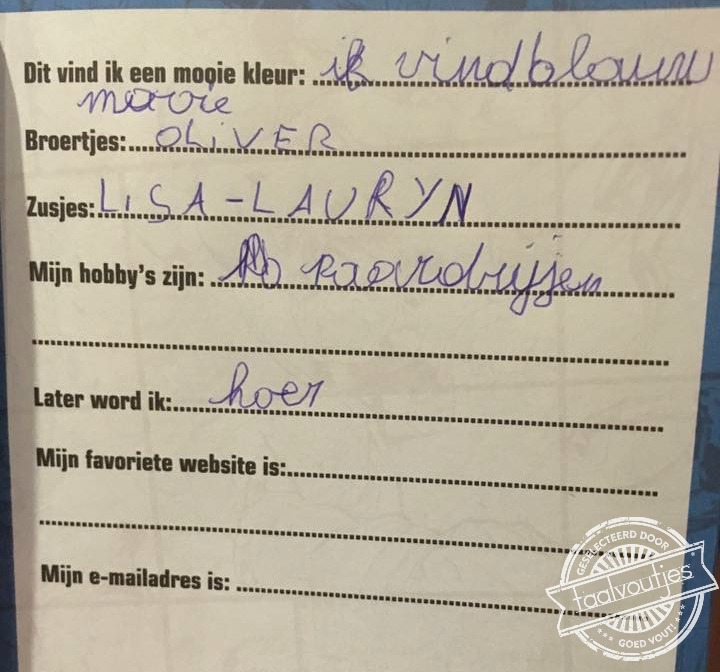 Dit vind ik een mooie kleur: ik vind blauw
mooie
Broertjes: OLiVER
Zusjes: LiSA-LAURYN
Mijn hobby's zijn: paardrijsen
Later word ik: hoer
Mijn favoriete website is:
Mijn e-mailadres is:
GESELECTEERD DOOR
taalvoutjes
GOED VOUT!